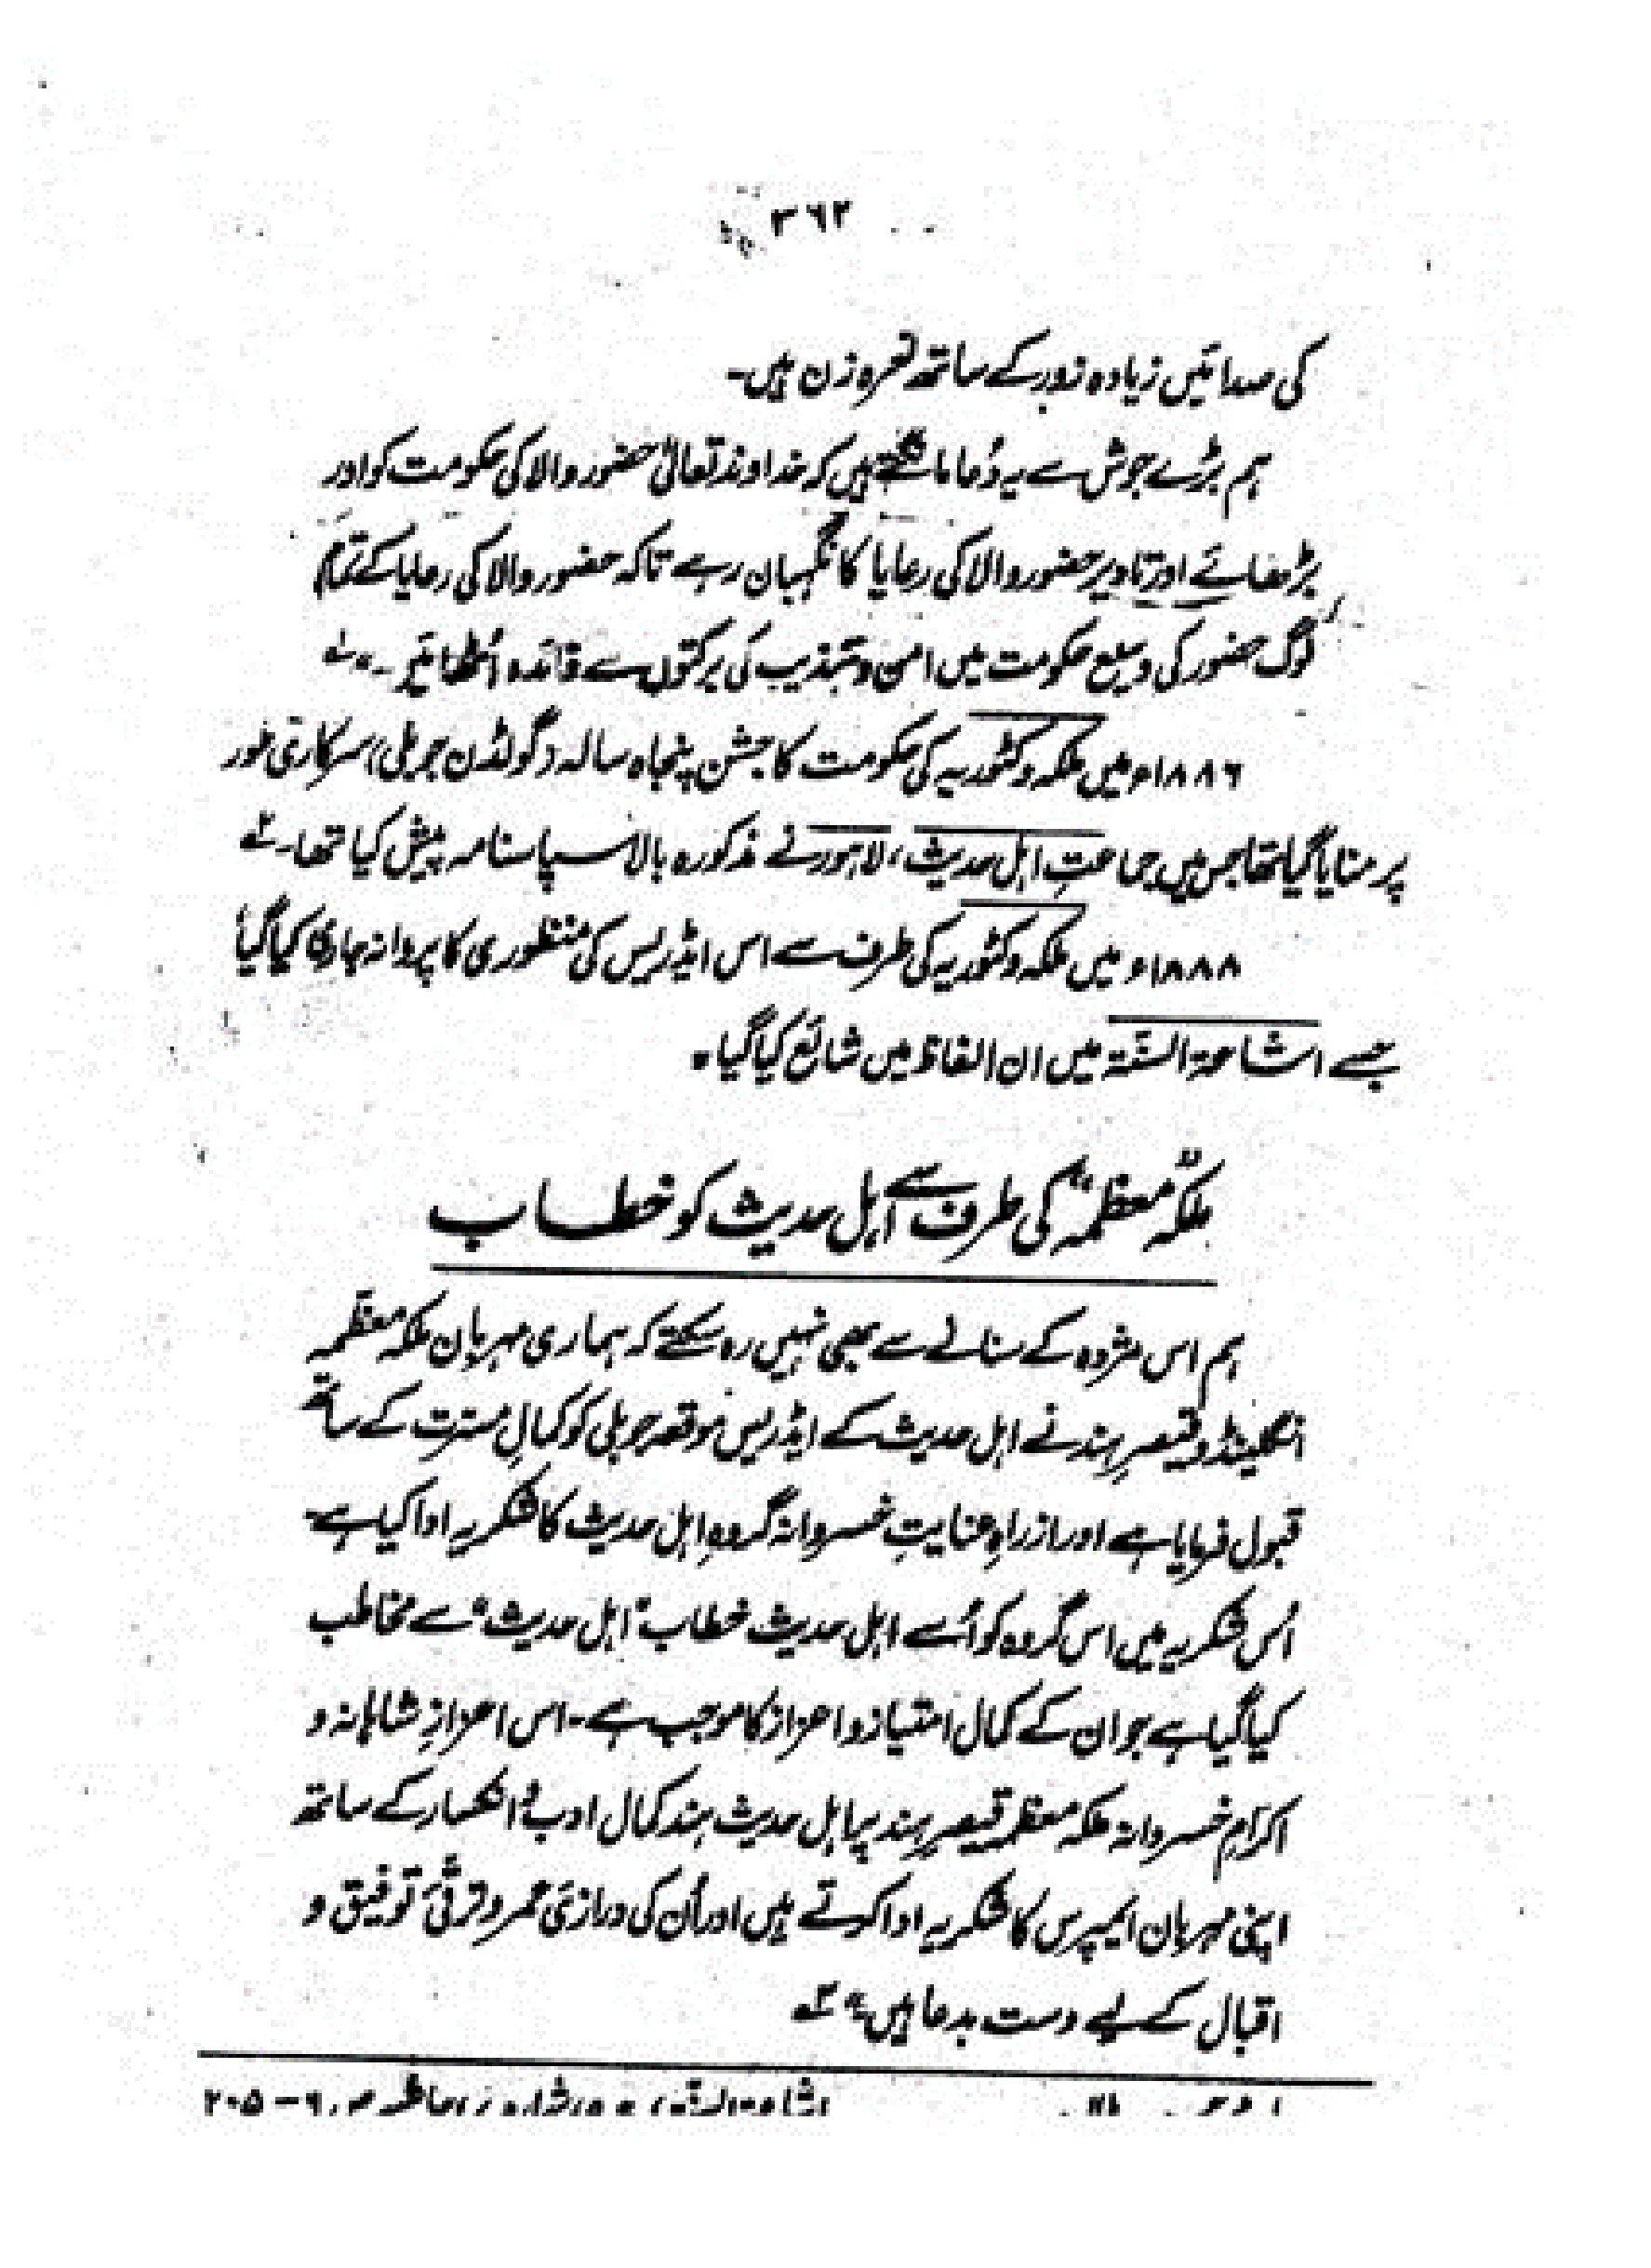 ۳۶۲
کی صدائیں زیادہ زور کے ساتھ نعرہ زن ہیں۔
ہم بڑے جوش سے یہ دُعا مانگتے ہیں کہ خداوند تعالیٰ حضور والا کی حکومت کو اور
بڑھائے اور تادیر حضور والا کی رعایا کا نگہبان رہے تاکہ حضور والا کی رعایا کے تمام
لوگ حضور کی وسیع حکومت میں امن و تہذیب کی برکتوں سے فائدہ اُٹھائیں۔" لے
۱۸۸۶ء میں ملکہ وکٹوریہ کی حکومت کا جشن پنجاہ سالہ (گولڈن جوبلی) سرکاری طور
پر منایا گیا تھا جس میں جماعتِ اہل حدیث، لاہور نے مذکورہ بالا سپاسنامہ پیش کیا تھا۔ ۲ے
۱۸۸۸ء میں ملکہ وکٹوریہ کی طرف سے اس ایڈریس کی منظوری کا پروانہ جاری کیا گیا
جسے اشاعۃ السنّۃ میں ان الفاظ میں شائع کیا گیا۔
"ملکہ معظمہ" کی طرف سے اہل حدیث کو خطاب
ہم اس مژدہ کے سنانے سے بھی نہیں رہ سکتے کہ ہماری مہربان ملکہ معظمہ
انگلینڈ و قیصرِ ہند نے اہل حدیث کے ایڈریس موقعہ جوبلی کو کمالِ مسرّت کے ساتھ
قبول فرمایا ہے اور از راہِ عنایتِ خسروانہ گروہِ اہل حدیث کا شکریہ ادا کیا ہے۔
اُس شکریہ میں اس گروہ کو اُسے اہل حدیث خطاب "اہل حدیث" سے مخاطب
کیا گیا ہے جو ان کے کمال امتیاز و اعزاز کا موجب ہے۔ اس اعزازِ شاہانہ و
اکرامِ خسروانہ ملکہ معظمہ قیصرِ ہند پر اہل حدیث ہند کمال ادب و انکسار کے ساتھ
اپنی مہربان ایمپرس کا شکریہ ادا کرتے ہیں اور اُن کی درازیَ عمر و ترقیَ توفیق و
اقبال کے لیے دست بدعا ہیں" ۳ے
۲۰۵-۶